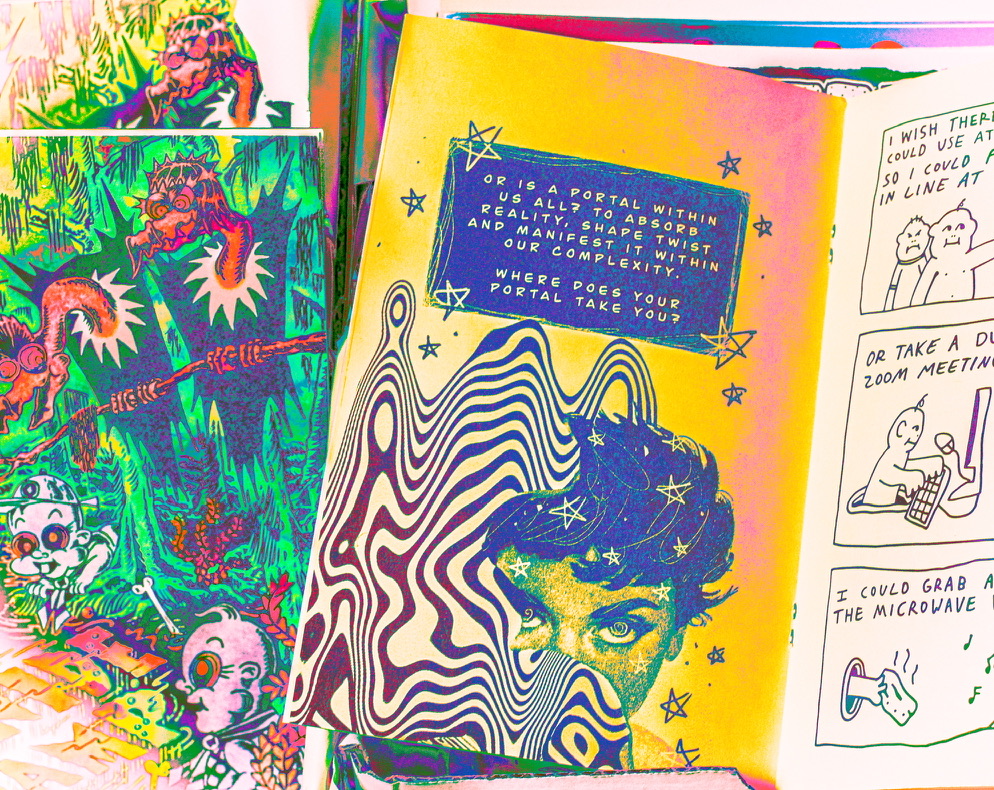 OR IS A PORTAL WITHIN
US ALL? TO ABSORB
REALITY, SHAPE TWIST
AND MANIFEST IT WITHIN
OUR COMPLEXITY.
WHERE DOES YOUR
PORTAL TAKE YOU?
I WISH
COULD USE
SO I COULD
IN LINE AT
OR TAKE A
ZOOM MEETING
I COULD GRAB
THE MICROWAVE